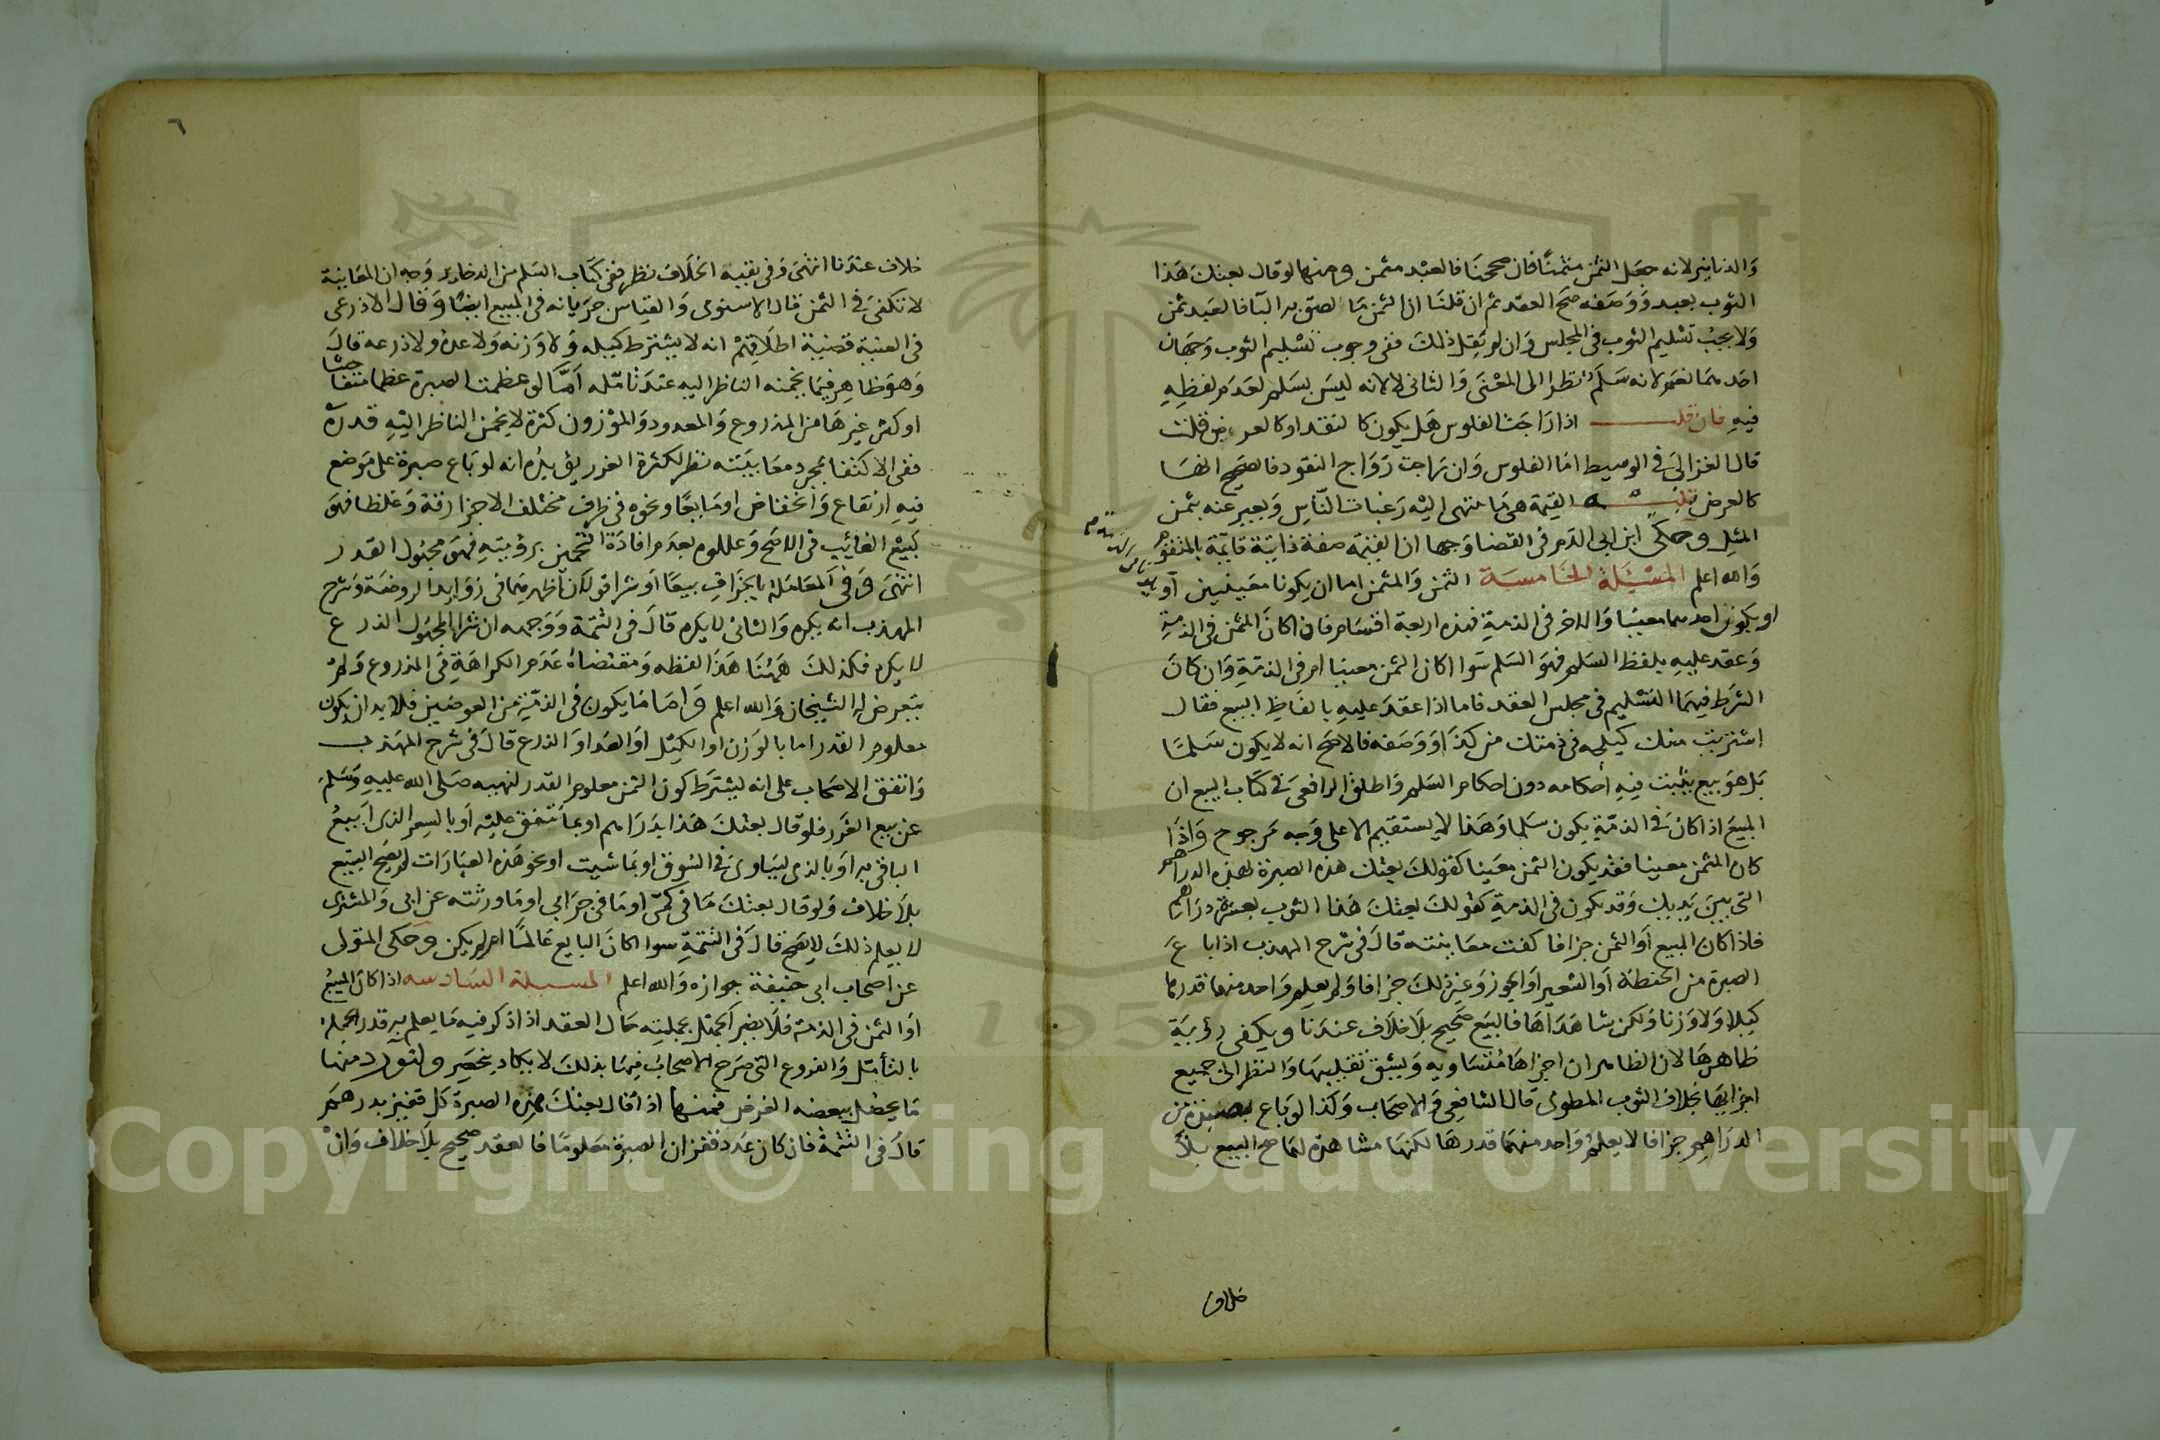 والدنانير لانه جعل الثمن مثمنا فان صححنا فالعبد مثمن ومنها لو قال بعتك هذا
الثوب بعبد ووصفه صح العقد ثم ان قلنا ان الثمن ما الصق به البا فالعبد ثمن
ولا يجب تسليم الثوب في المجلس وان لو نقل ذلك ففي وجوب تسليم الثوب وجهان
احدهما نعم لانه سلم نظرا الى المعنى والثاني لا لانه ليس بسلم لعدم لفظه
فيه فان قلت اذا راجت الفلوس هل يكون كالنقد او كالعرض قلت
قال الغزالي في الوسيط اما الفلوس وان راجت رواج النقود فالصحيح انها
كالعرض القيمة هي ما تنتهي اليه رغبات الناس ويعبر عنه بثمن
المثل وحكى ابن ابي الدم في القضا وجها ان القيمة صفة ذاتية قايمة بالمتقوم
والله اعلم المسئلة الخامسة الثمن والمثمن اما ان يكونا معينين او
او يكون احدهما معينا والاخر في الذمة فهذه اربعة اقسام فان كان المثمن في الذمة
وعقد عليه بلفظ السلم فهو السلم سوا اكان الثمن معينا ام في الذمة وان كان
الشرط فيهما التسليم في مجلس العقد فاما اذا عقد عليه بالفاظ البيع فقال
اشتريت منك كيلجه في ذمتك من كذا او ووصفه فالاصح انه لا يكون سلما
بل هو بيع يثبت فيه احكامه دون احكام السلم واطلق الرافعي في كتاب البيع ان
المبيع اذا كان في الذمة يكون سلما وهذا لا يستقيم الا على وجه مرجوح واذا
كان المثمن معينا فقد يكون الثمن معينا كقولك بعتك هذه الصبرة بهذه الدراهم
التي بين يديك وقد يكون في الذمة كقولك بعتك هذا الثوب بعشرة دراهم
فاذا كان المبيع او الثمن جزافا كفت معاينته قال في شرح المهذب اذا باع
الصبرة من الحنطة او الشعير او الجوز وغير ذلك جزافا ولم يعلم واحد منهما قدرها
كيلا ولا وزنا ولكن شاهداها فالبيع صحيح بلا خلاف عندنا ويكفي رؤية
ظاهرها لان الظاهر ان اجزاها متساويه ويشق تقليبها والنظر الى جميع
اجزايها بخلاف الثوب المطوي قال الشافعي والاصحاب وكذا لو باع بصبرة من
الدراهم جزافا لا يعلم واحد منهما قدرها لكنها مشاهدة لهما صح البيع بلا
خلاف
٦
خلاف عندنا انتهى وفي بقيه الخلاف نظر ففي كتاب السلم من الدخاير وجه ان المعاينة
لا تكفي في الثمن قال الاسنوي والقياس جريانه في المبيع ايضا وقال الاذرعي
في الغنية قضية اطلاقهم انه لا يشترط كيله ولا وزنه ولا عده ولا ذرعه قال
وهو ظاهر فيما يخمنه الناظر اليه عند تامله اما لو عظمت الصبرة عظما متفاحشا
او كثر غيرها من المذروع والمعدود والموزون كثرة لا يخمن الناظر اليه قدره
ففي الاكتفا بمجرد معاينته نظر لكثرة الغرر يؤيده انه لو باع صبرة على موضع
فيه ارتفاع وانخفاض او مايعا ونحوه في ظرف مختلف الاجزا رقة وغلظا فهو
كبيع الغايب في الاصح وعللوه بعدم افادة التخمين برؤيته فهو مجهول القدر
انتهى وفي المعاملة بالجزاف بيعا او شرا قولان اظهرهما في زوايد الروضة وشرح
المهذب انه يكره والثاني لا يكره قال في التتمة ووجهه ان شرا المجهول الذرع
لا يكره فكذلك ههنا هذا لفظه ومقتضاه عدم الكراهة في المذروع ولم
يتعرض له الشيخان والله اعلم واما ما يكون في الذمة من العوضين فلا بد ان يكون
معلوم القدر اما بالوزن او الكيل او العد او الذرع قال في شرح المهذب
واتفق الاصحاب على انه يشترط كون الثمن معلوم القدر لنهيه صلى الله عليه وسلم
عن بيع الغرر فلو قال بعتك هذا بدراهم او بما نتفق عليه او بالسعر الذي ابيع
الباقي به او بالذي يساوي في السوق او بما شيت او نحو هذه العبارات لم يصح البيع
بلا خلاف ولو قال بعتك ما في كمي او ما في جرابي او ما ورثته عن ابي والمشتري
لا يعلم ذلك لا يصح قال في التتمة سوا اكان البايع عالما ام لم يكن وحكى المتولي
عن اصحاب ابي حنيفة جوازه والله اعلم المسيلة السادسه اذا كان المبيع
او الثمن في الذمة فلا يضر الجهل بجملته حال العقد اذا ذكر فيه ما يعلم به قدر الجملة
بالتأمل والفروع التي صرح الاصحاب فيها بذلك لا يكاد ينحصر ولنورد منها
ما يحصل ببعضه الغرض فمنها اذا قال بعتك هذه الصبرة كل قفيز بدرهم
قال في التتمة فان كان عدد قفزان الصبرة معلوما فالعقد صحيح بلا خلاف وان
Copyright © King Saud University
1957